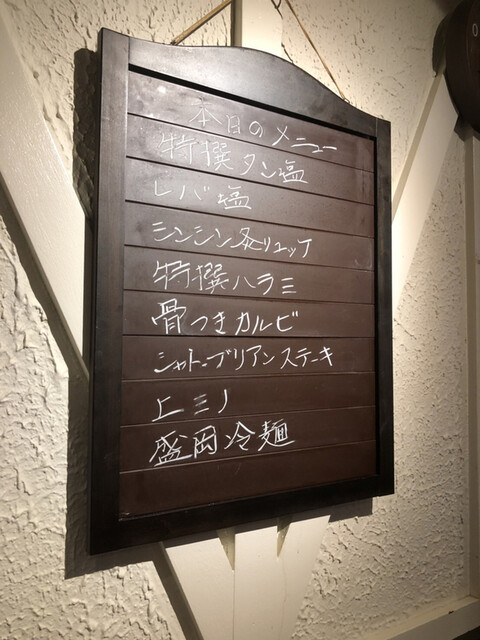 本日のメニュー
特撰タン塩
レバ塩
シンシン炙りユッケ
特撰ハラミ
骨つきカルビ
シャトーブリアンステーキ
上ミノ
盛岡冷麺